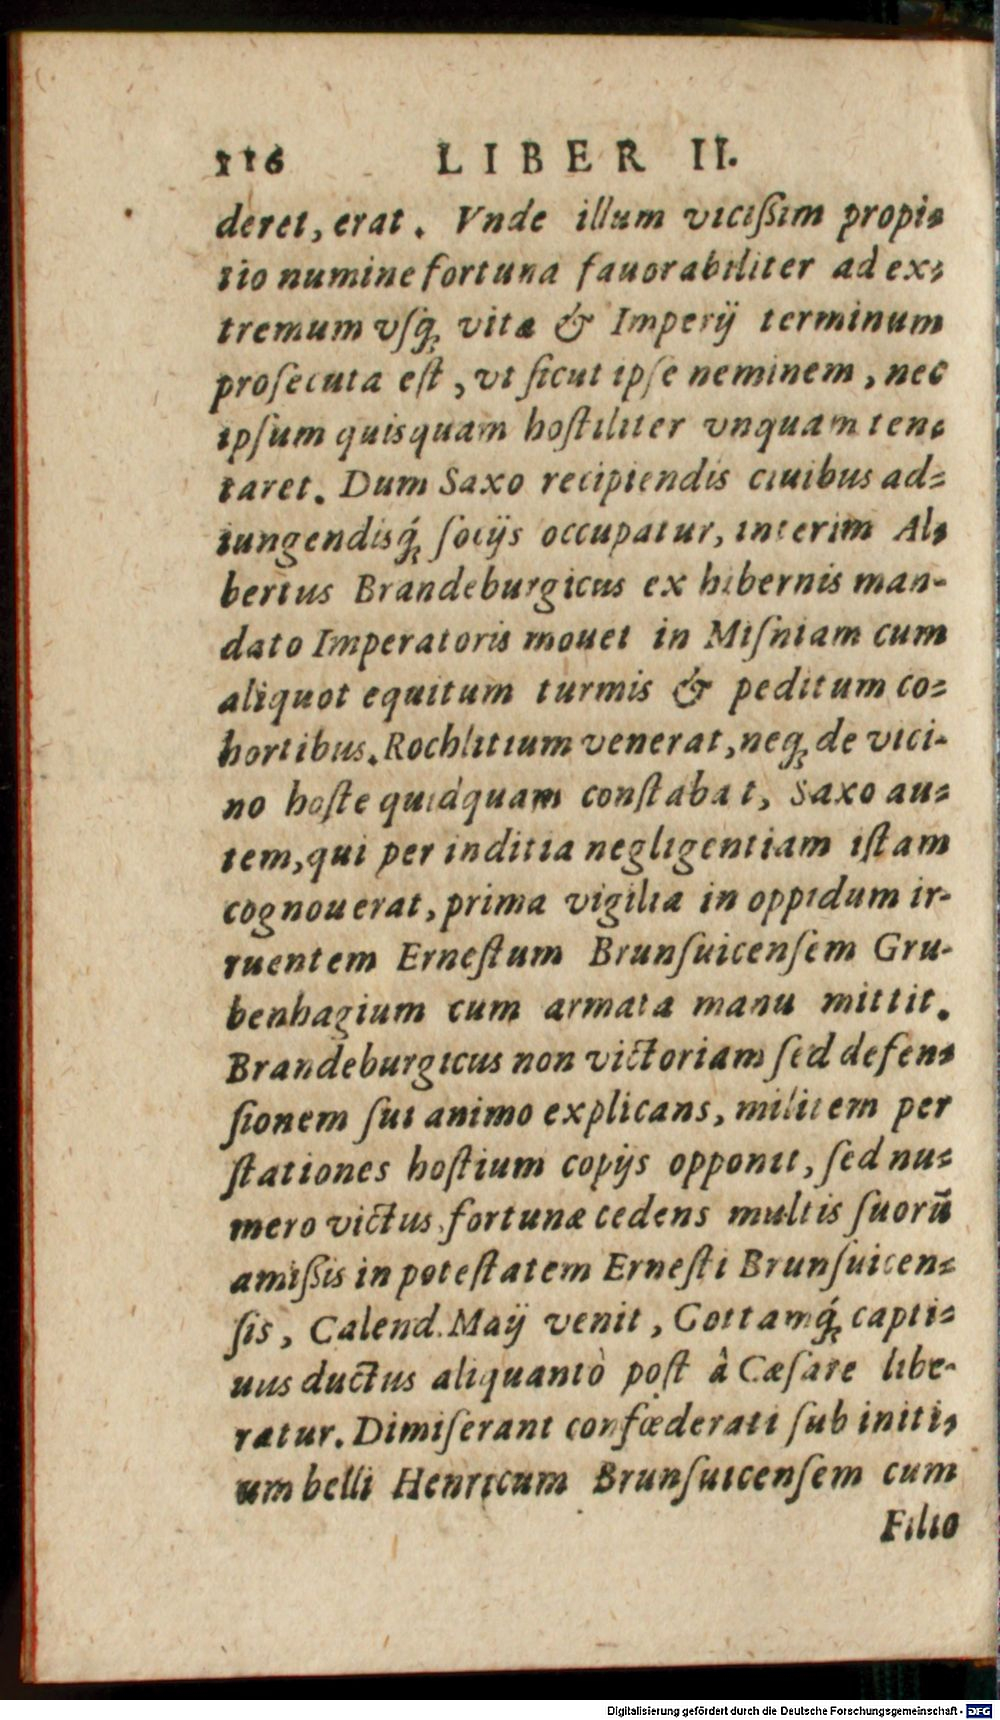 116 LIBER II.
deret, erat. Vnde illum viciſsim propi⸗
tio numine fortuna fauorabiliter ad ex⸗
tremum vſq; vitæ & Imperij terminum
proſecuta eſt, vt ſicut ipſe neminem, nec
ipſum quisquam hoſtiliter vnquam ten⸗
taret. Dum Saxo recipiendis ciuibus ad⸗
iungendisq́; ſocijs occupatur, interim Al⸗
bertus Brandeburgicus ex hibernis man-
dato Imperatoris mouet in Miſniam cum
aliquot equitum turmis & peditum co⸗
hortibus. Rochlitium venerat, neq; de vici-
no hoſte quidquam conſtabat, Saxo au⸗
tem, qui per inditia negligentiam iſtam
cognouerat, prima vigilia in oppidum ir-
ruentem Erneſtum Brunſuicenſem Gru-
benhagium cum armata manu mittit.
Brandeburgicus non victoriam ſed defen⸗
ſionem ſui animo explicans, militem per
ſtationes hoſtium copijs opponit, ſed nu⸗
mero victus fortunæ cedens multis ſuorū
amiſsis in poteſtatem Erneſti Brunſuicen⸗
ſis, Calend. Maij venit, Gottamq́; capti⸗
uus ductus aliquantò poſt â Cæſare libe-
ratur. Dimiſerant confœderati ſub initi⸗
um belli Henricum Brunſuicenſem cum
Filio
Digitalisierung gefördert durch die Deutsche Forschungsgemeinschaft - DFG